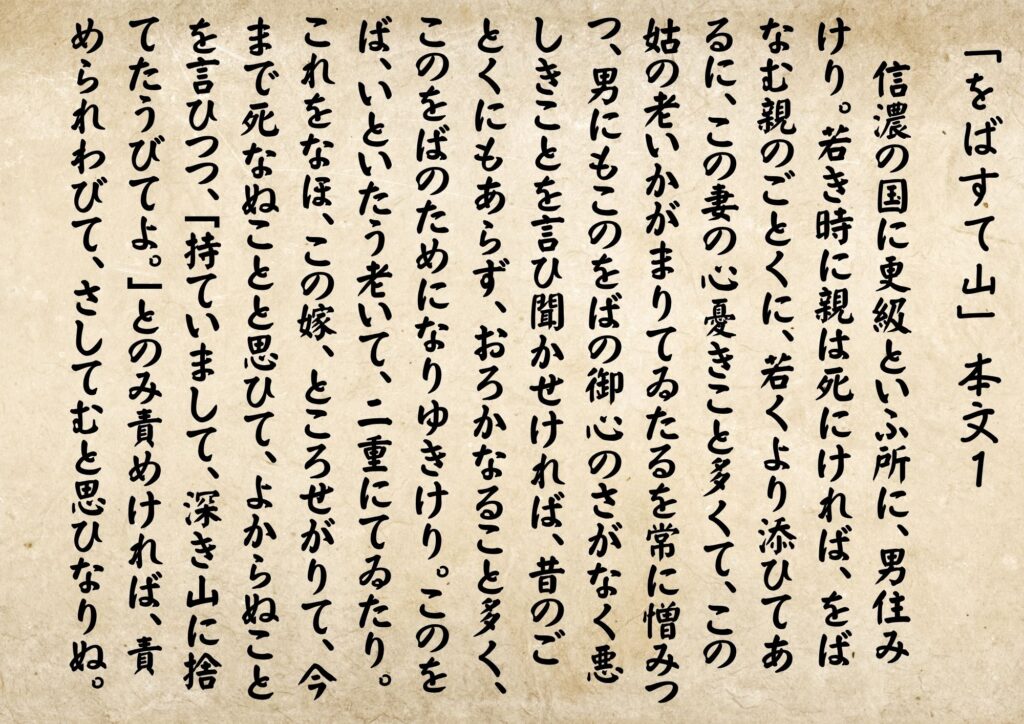 「をばすて山」 本文1
信濃の国に更級といふ所に、男住み
けり。若き時に親は死にければ、をば
なむ親のごとくに、若くより添ひてあ
るに、この妻の心憂きこと多くて、この
姑の老いかがまりてゐたるを常に憎みつ
つ、男にもこのをばの御心のさがなく悪
しきことを言ひ聞かせければ、昔のご
とくにもあらず、おろかなること多く、
このをばのためになりゆきけり。このを
ば、いといたう老いて、二重にてゐたり。
これをなほ、この嫁、ところせがりて、今
まで死なぬことと思ひて、よからぬこと
を言ひつつ、「持ていまして、深き山に捨
てたうびてよ。」とのみ責めければ、責
められわびて、さしてむと思ひなりぬ。